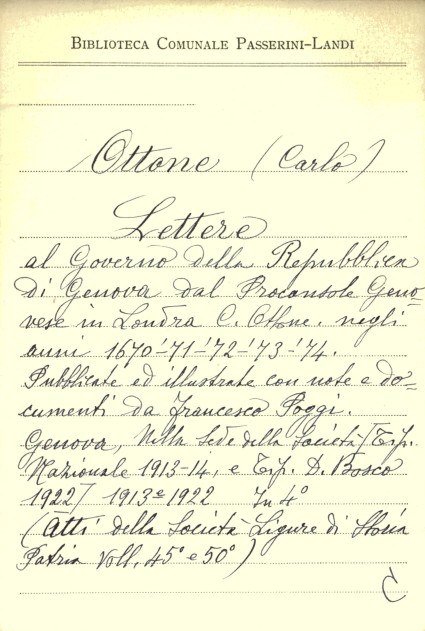 BIBLIOTECA COMUNALE PASSERINI-LANDI
Ottone (Carlo)
Lettere
al Governo della Repubblica
di Genova dal Proconsole Geno-
vese in Londra C. Ottone. negli
anni 1670-'71-'72-'73-'74.
Pubblicate ed illustrate con note e do-
cumenti da Francesco Poggi.
Genova, Nella Sede della Società [Tip.
Nazionale 1913-14, e Tip. D. Bosco
1922] 1913e1922 In 4°
(Atti della Società Ligure di Storia
Patria Voll. 45° e 50°)
C